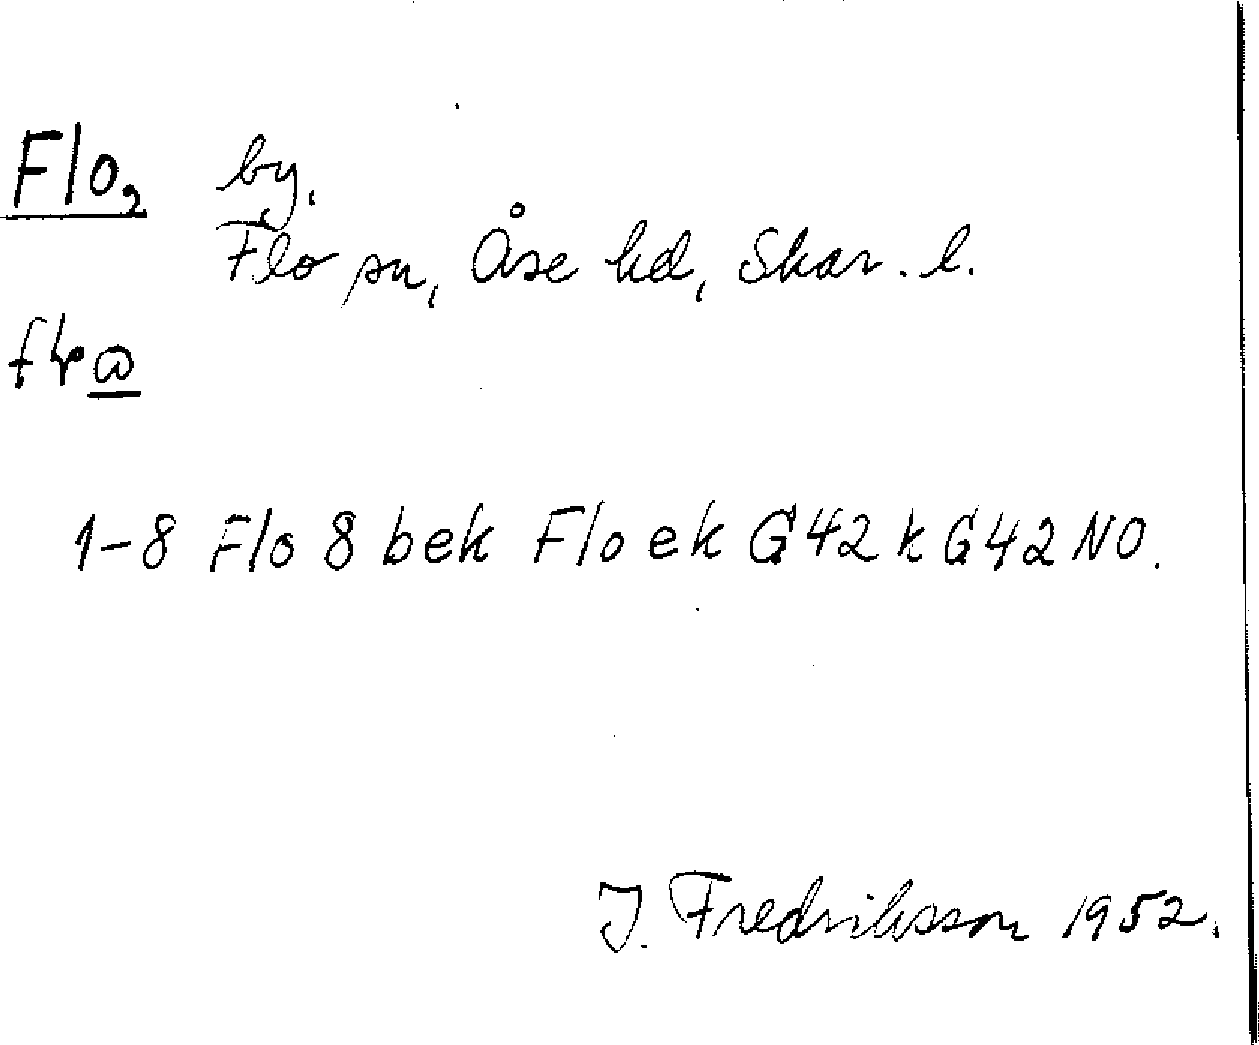 Flo₂ by.
Flo sn, Åse hd, Skar. l.
1-8 Flo 8 bek Flo ek G42 k G42 NO.
J. Fredriksson 1952.